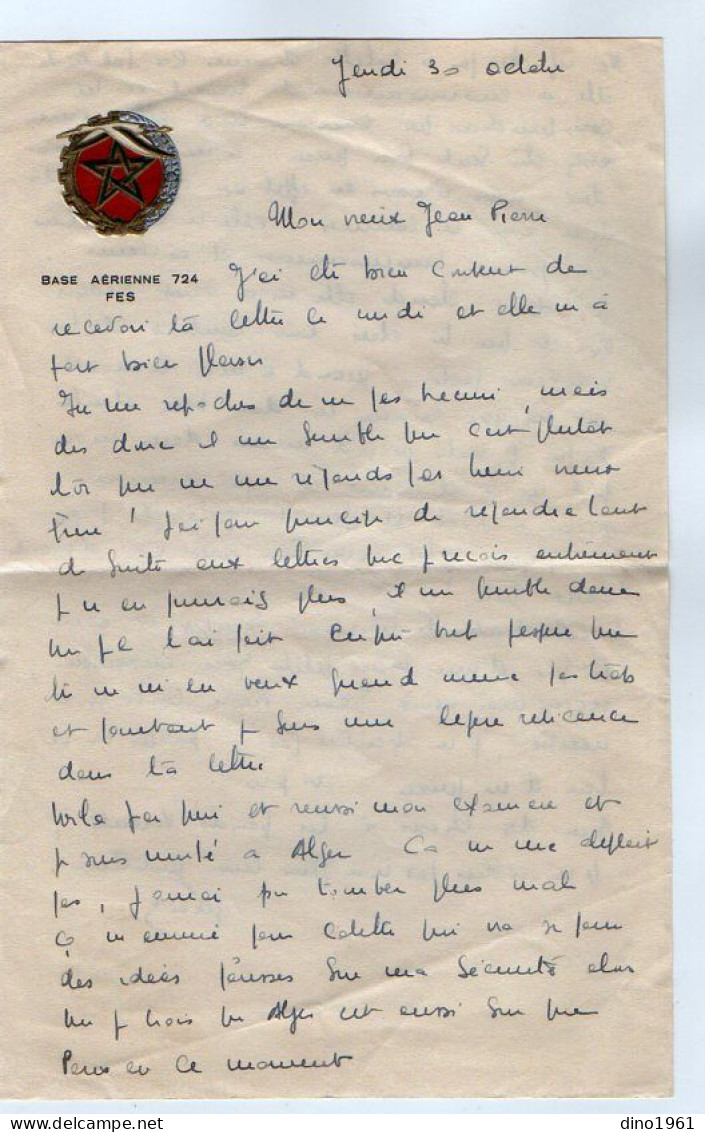 Jeudi 30 octobre
BASE AÉRIENNE 724
FES
Mon vieux Jean Pierre
J'ai été bien content de
recevoir ta lettre ce midi et elle m'a
fait bien plaisir
Tu me reproches de ne pas t'écrire, mais
dis donc il me semble que c'est plutôt
toi qui ne me réponds pas hein vieux
frère ! J'ai pour principe de répondre tout
de suite aux lettres que je reçois autrement
je n'en finirais plus, il me semble donc
que je l'ai fait. Enfin bref j'espère que
tu ne m'en veux quand même pas trop
et pourtant je sens une légère réticence
dans ta lettre
Voilà j'ai fini et réussi mon examen et
je suis muté à Alger. Ça ne me déplait
pas, j'aurai pu tomber plus mal
Ça m'ennuie pour Colette qui va se faire
des idées fausses sur ma sécurité alors
que je crois que Alger est aussi sur que
Paris en ce moment
dino1961